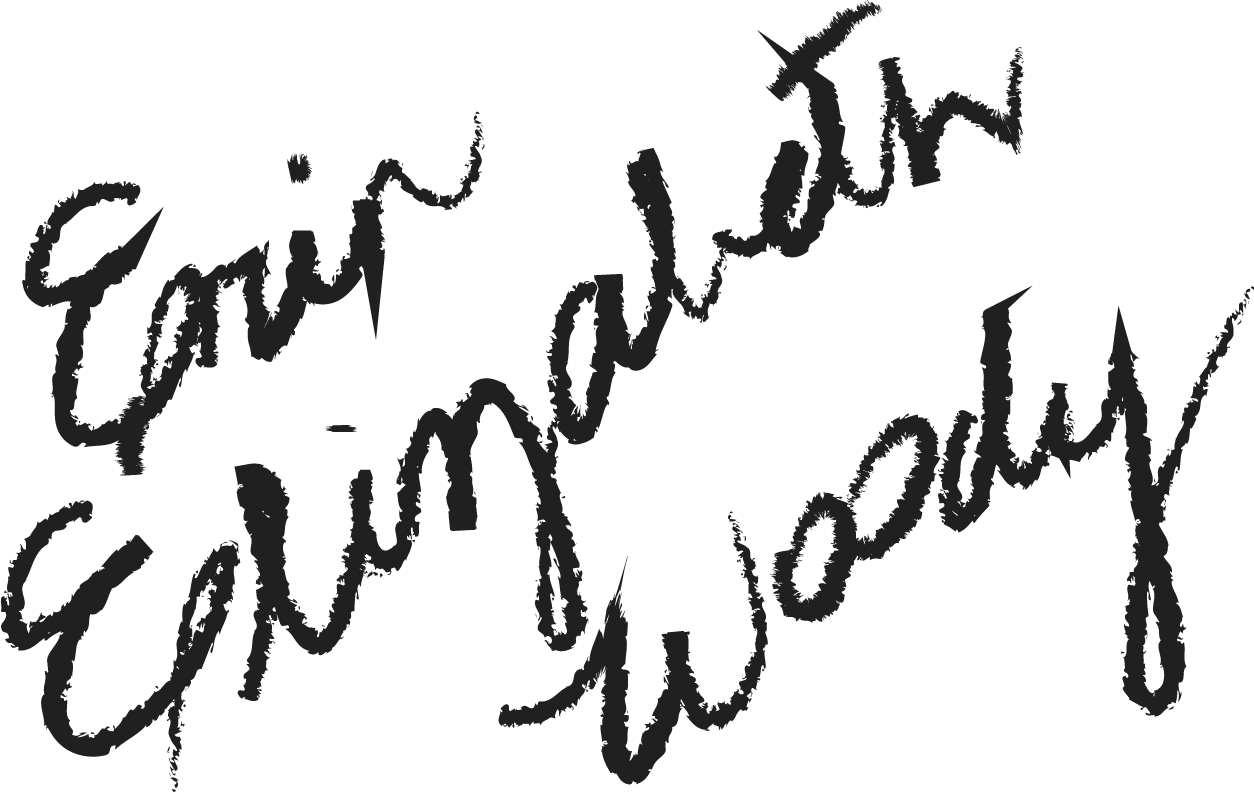 Erin
Elizabeth
Woody